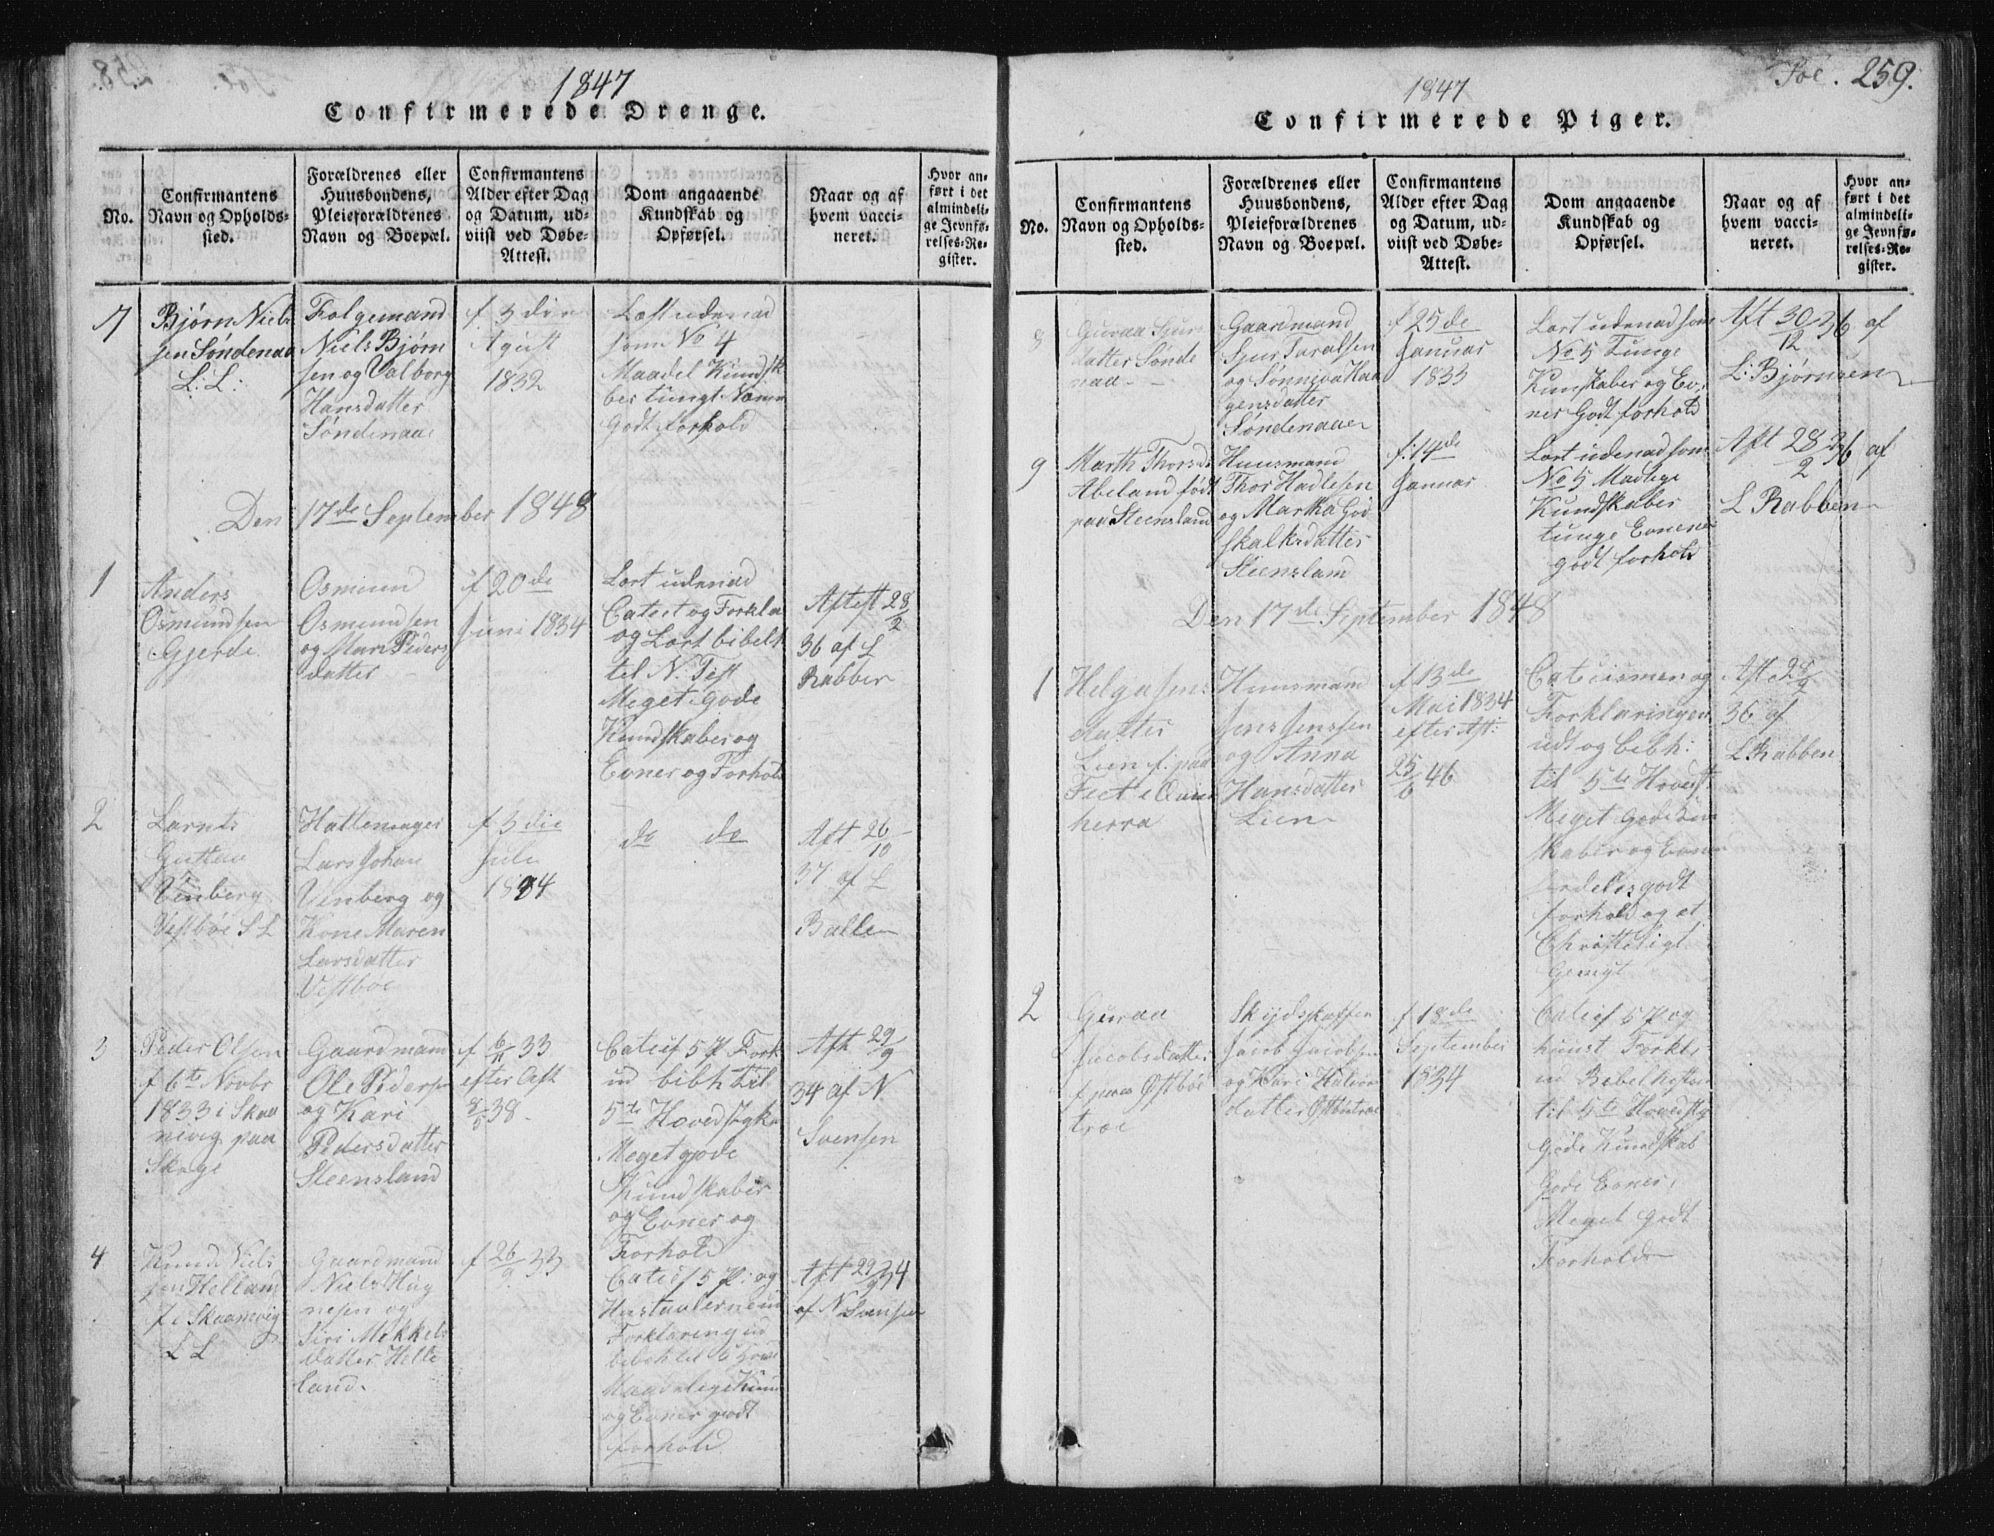 1847
Confirmerede Drenge.
No.
Confirmantens
Navn og Opholds-
sted.
Forældrenes eller
Huusbondens,
Pleieforældrenes
Navn og Boepæl.
Confirmantens
Alder efter Dag
og Datum, ud-
viist ved Døbe-
Attest.
Dom angaaende
Kundskab og
Opførsel.
Naar og af
hvem vacci-
neret.
Hvor an-
ført i det
almindeli-
ge Jevnfø-
relses-Re-
gister.
7
Bjørn Niel-
sen Søndenaa
L: L:
Folgemand
Niels Bjørn
sen og Valborg
Hansdatter
Søndenaae
f. 3 die
Agust
1832
Læst udenad
som No 4
Maadel Kundsk
ber tungt Nemm
Godt forhold
Den 17de September 1848
1
Anders
Osmundsen
Gjerde
Osmun
Osmundsen
og Mari Peders
datter
f 20de
Juni 1834
Lært udenad
Catect og Forkla
og Lært bibelh
til N. Test
Meget Gode
Kundskaber og
Evner og Forhold
Aftest 28/2
36 af L
Rabben
2
Larnts
Gustau
Venberg
Vestbøe S L
Hattemager
Lars Johan
Venberg og
Kone Maren
Larsdatter
Vestboe
f. 3 die
Juli
1834
do do
Aft 26/10
37 af L
Balle
3
Peder Olsen
f 6te Novbr
1833 i Skaa
nevig paa
Gaardmand
Ole Peders
og Kari
Pedersdatter
Steensland
f 6/11 33
efter Aft
8/5 38
Catic 5 P Fork
ud bibh til
5te Hovedstyke
Meget gode
Kundskaber
og Evner og
Forhold
Aft 29/9
34 af N.
Svensen
4
Knud Niels
sen Helland
f i Skaanevig
L L
Gaardmand
Niels Hag
nesen og
Siri Mikkels
datter Helle
land
f 26/9 33
Catic 5 P: og
Hustavlerne ud
Forklaring ud
bibh til 5 Hove
Maadelige Kun
og Evner godt
forhold
Aft 29/9 34
af N Svensen
Foe. 259.
1847
Confirmerede Piger.
No.
Confirmantens
Navn og Opholds-
sted.
Forældrenes eller
Huusbondens,
Pleieforældrenes
Navn og Boepæl.
Confirmantens
Alder efter Dag
og Datum, ud-
viist ved Døbe-
Attest.
Dom angaaende
Kundskab og
Opførsel.
Naar og af
hvem vacci-
neret.
Hvor an-
ført i det
almindeli-
ge Jevnfø-
relses-Re-
gister.
8
Guraa Sjurs
datter Sønde
naa
Gaardmand
Sjur Taralsen
og Sønneva Haa
gensdatter
Søndenaae
f 25de
Januar
1833
Lært udenad som
No 5 Tunge
Kunskaber og Ev
ner Godt forhold
Aft 30/12 36 af
L: Bjørnsen
9
Marth Thorsd
Abeland født
paa Steensland
Huusmand
Thor Hadlesen
og Martha God
skalksdatter
Steensland
f: 14de
Januar
Lært udenad som
No 5 Madlige
Kundskaber
tunge Evner
godt forhold
Aft 28/2 36 af
L Rabben
Den 17de September 1848
1
Helga Jens
datter
Lien f. paa
Fiet i Qvin
herra
Huusmand
Jens Jenssen
og Anna
Hansdatter
Lien
f 13de
Mai 1834
efter Aft:
25/6 46
Catecismen og
Forklaringen
udt og bibh:
til 5te Hovedst
Meget Gode Kun
skaber og Evner
godt
forhold og et
Christeligt
Gemyt
Aft: 28/2
36 af
L Rabben
2
Guraa
Jacobsdatter
f paa Østbøe
troe
Skydskaffer
Jacob Jacobsen
og Kari Halvor
datter Østbøtroe
f 18de
September
1834
Catic 5 P og
hust Forkl:
ud Bibelhistori
til 5te Hovedsty
Gode Kundskab
Gode Evner,
Meget Godt
Forhold